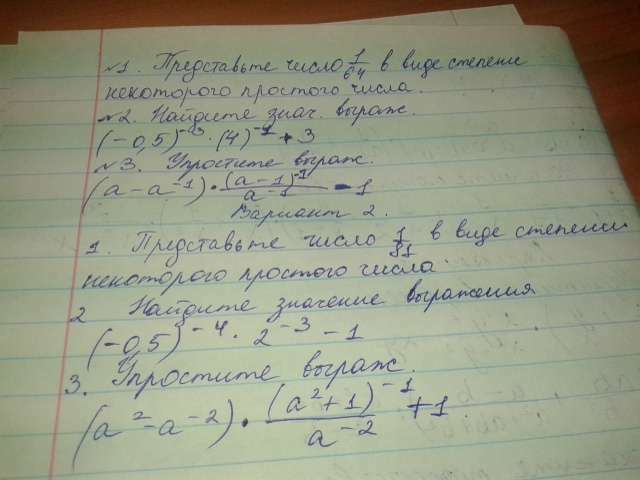 №1. Представьте число 1/64 в виде степени
некоторого простого числа.
№2. Найдите знач. выраж.
(-0,5)⁻³ · (4)⁻¹ + 3
№3. Упростите выраж.
(a - a⁻¹) · (a-1)⁻¹/a⁻¹ - 1
Вариант 2.
1. Представьте число 1/81 в виде степени
некоторого простого числа.
2 Найдите значение выражения
(-0,5)⁻⁴ · 2⁻³ - 1
3. Упростите выраж.
(a² - a⁻²) · (a²+1)⁻¹/a⁻² + 1